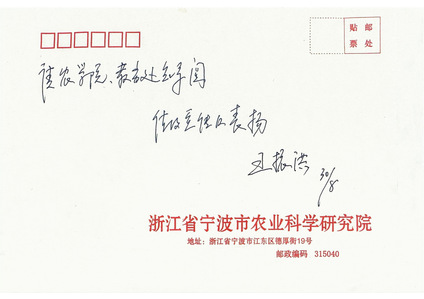 贴邮
票处
请农学院、教务处领导阅
王振洪
30/8
浙江省宁波市农业科学研究院
地址：浙江省宁波市江东区德厚街19号
邮政编码 315040